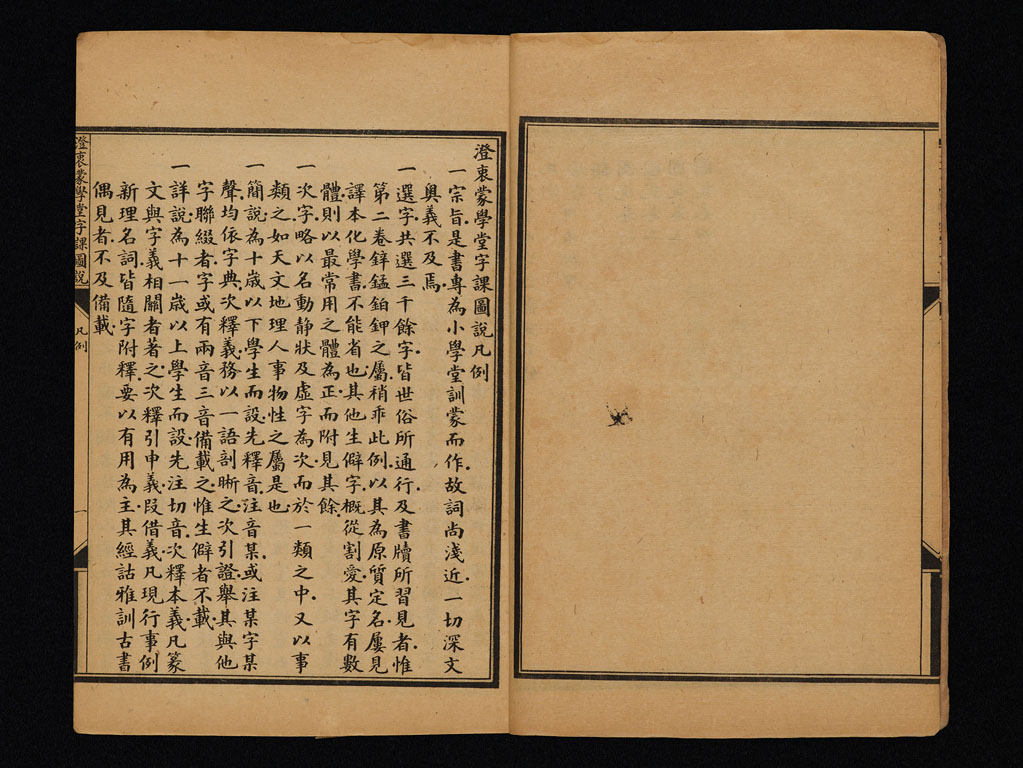 澄衷蒙學堂字課圖說凡例
一宗旨是書專為小學堂訓蒙而作故詞尚淺近一切深文
奧義不及焉
一選字共選三千餘字皆世俗所通行及書牘所習見者惟
第二卷鋅錳鉑鉀之屬稍乖此例以其為原質定名屢見
譯本化學書不能省也其他生僻字概從割愛其字有數
體則以最常用之體為正而附見其餘
一次字略以名動靜狀及虛字為次而於一類之中又以事
類之如天文地理人事物性之屬是也
一簡說為十歲以下學生而設先釋音注音某或注某字某
聲均依字典次釋義務以一語剖晰之次引證舉其與他
字聯綴者字或有兩音三音備載之惟生僻者不載
一詳說為十一歲以上學生而設先注切音次釋本義凡篆
文與字義相關者著之次釋引申義叚借義凡現行事例
新理名詞皆隨字附釋要以有用為主其經詁雅訓古書
偶見者不及備載
澄衷蒙學堂字課圖說
凡例
一